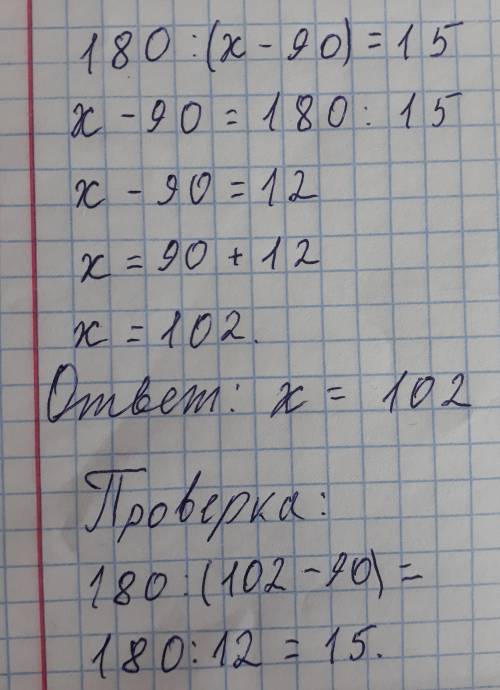 180 : (x - 90) = 15
x - 90 = 180 : 15
x - 90 = 12
x = 90 + 12
x = 102.
Ответ: x = 102
Проверка:
180 : (102 - 90) =
180 : 12 = 15.